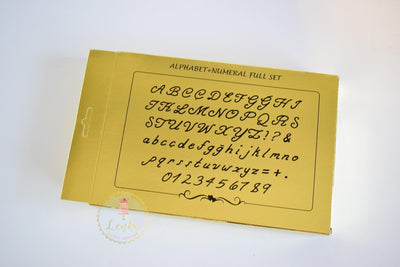 ALPHABET+NUMERAL FULL SET
ABCCDEFGGHI
IJKLMNOPQRS
STUVWXYZ!?&
abcdefghijklmno
pqrsstuvwxyz=+.
0123456789